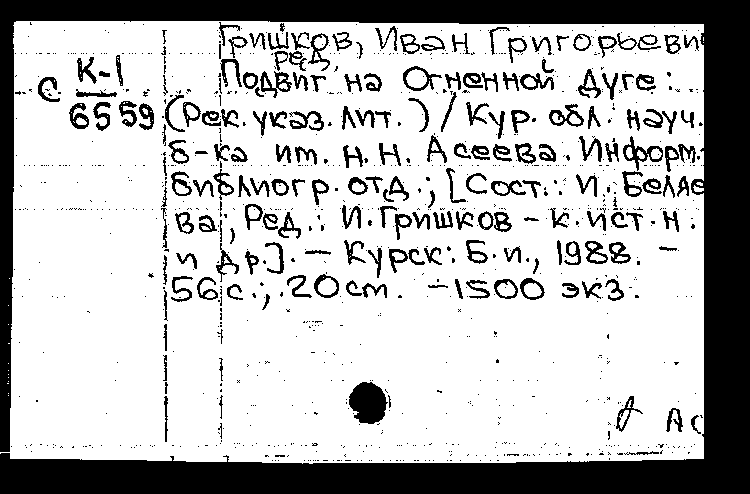 Гришков, Иван Григорьеви
ред.
С К-1
6559
Подвиг на Огненной дуге:
(Рек. указ. лит.) / Кур. обл. науч.
б-ка им. Н.Н. Асеева. Информ.-
библиогр. отд.; [Сост.: И. Беляе
ва; Ред.: И. Гришков - к. ист. н.
и др.]. — Курск: Б.и., 1988. —
56 с.; 20 см. — 1500 экз.
АС